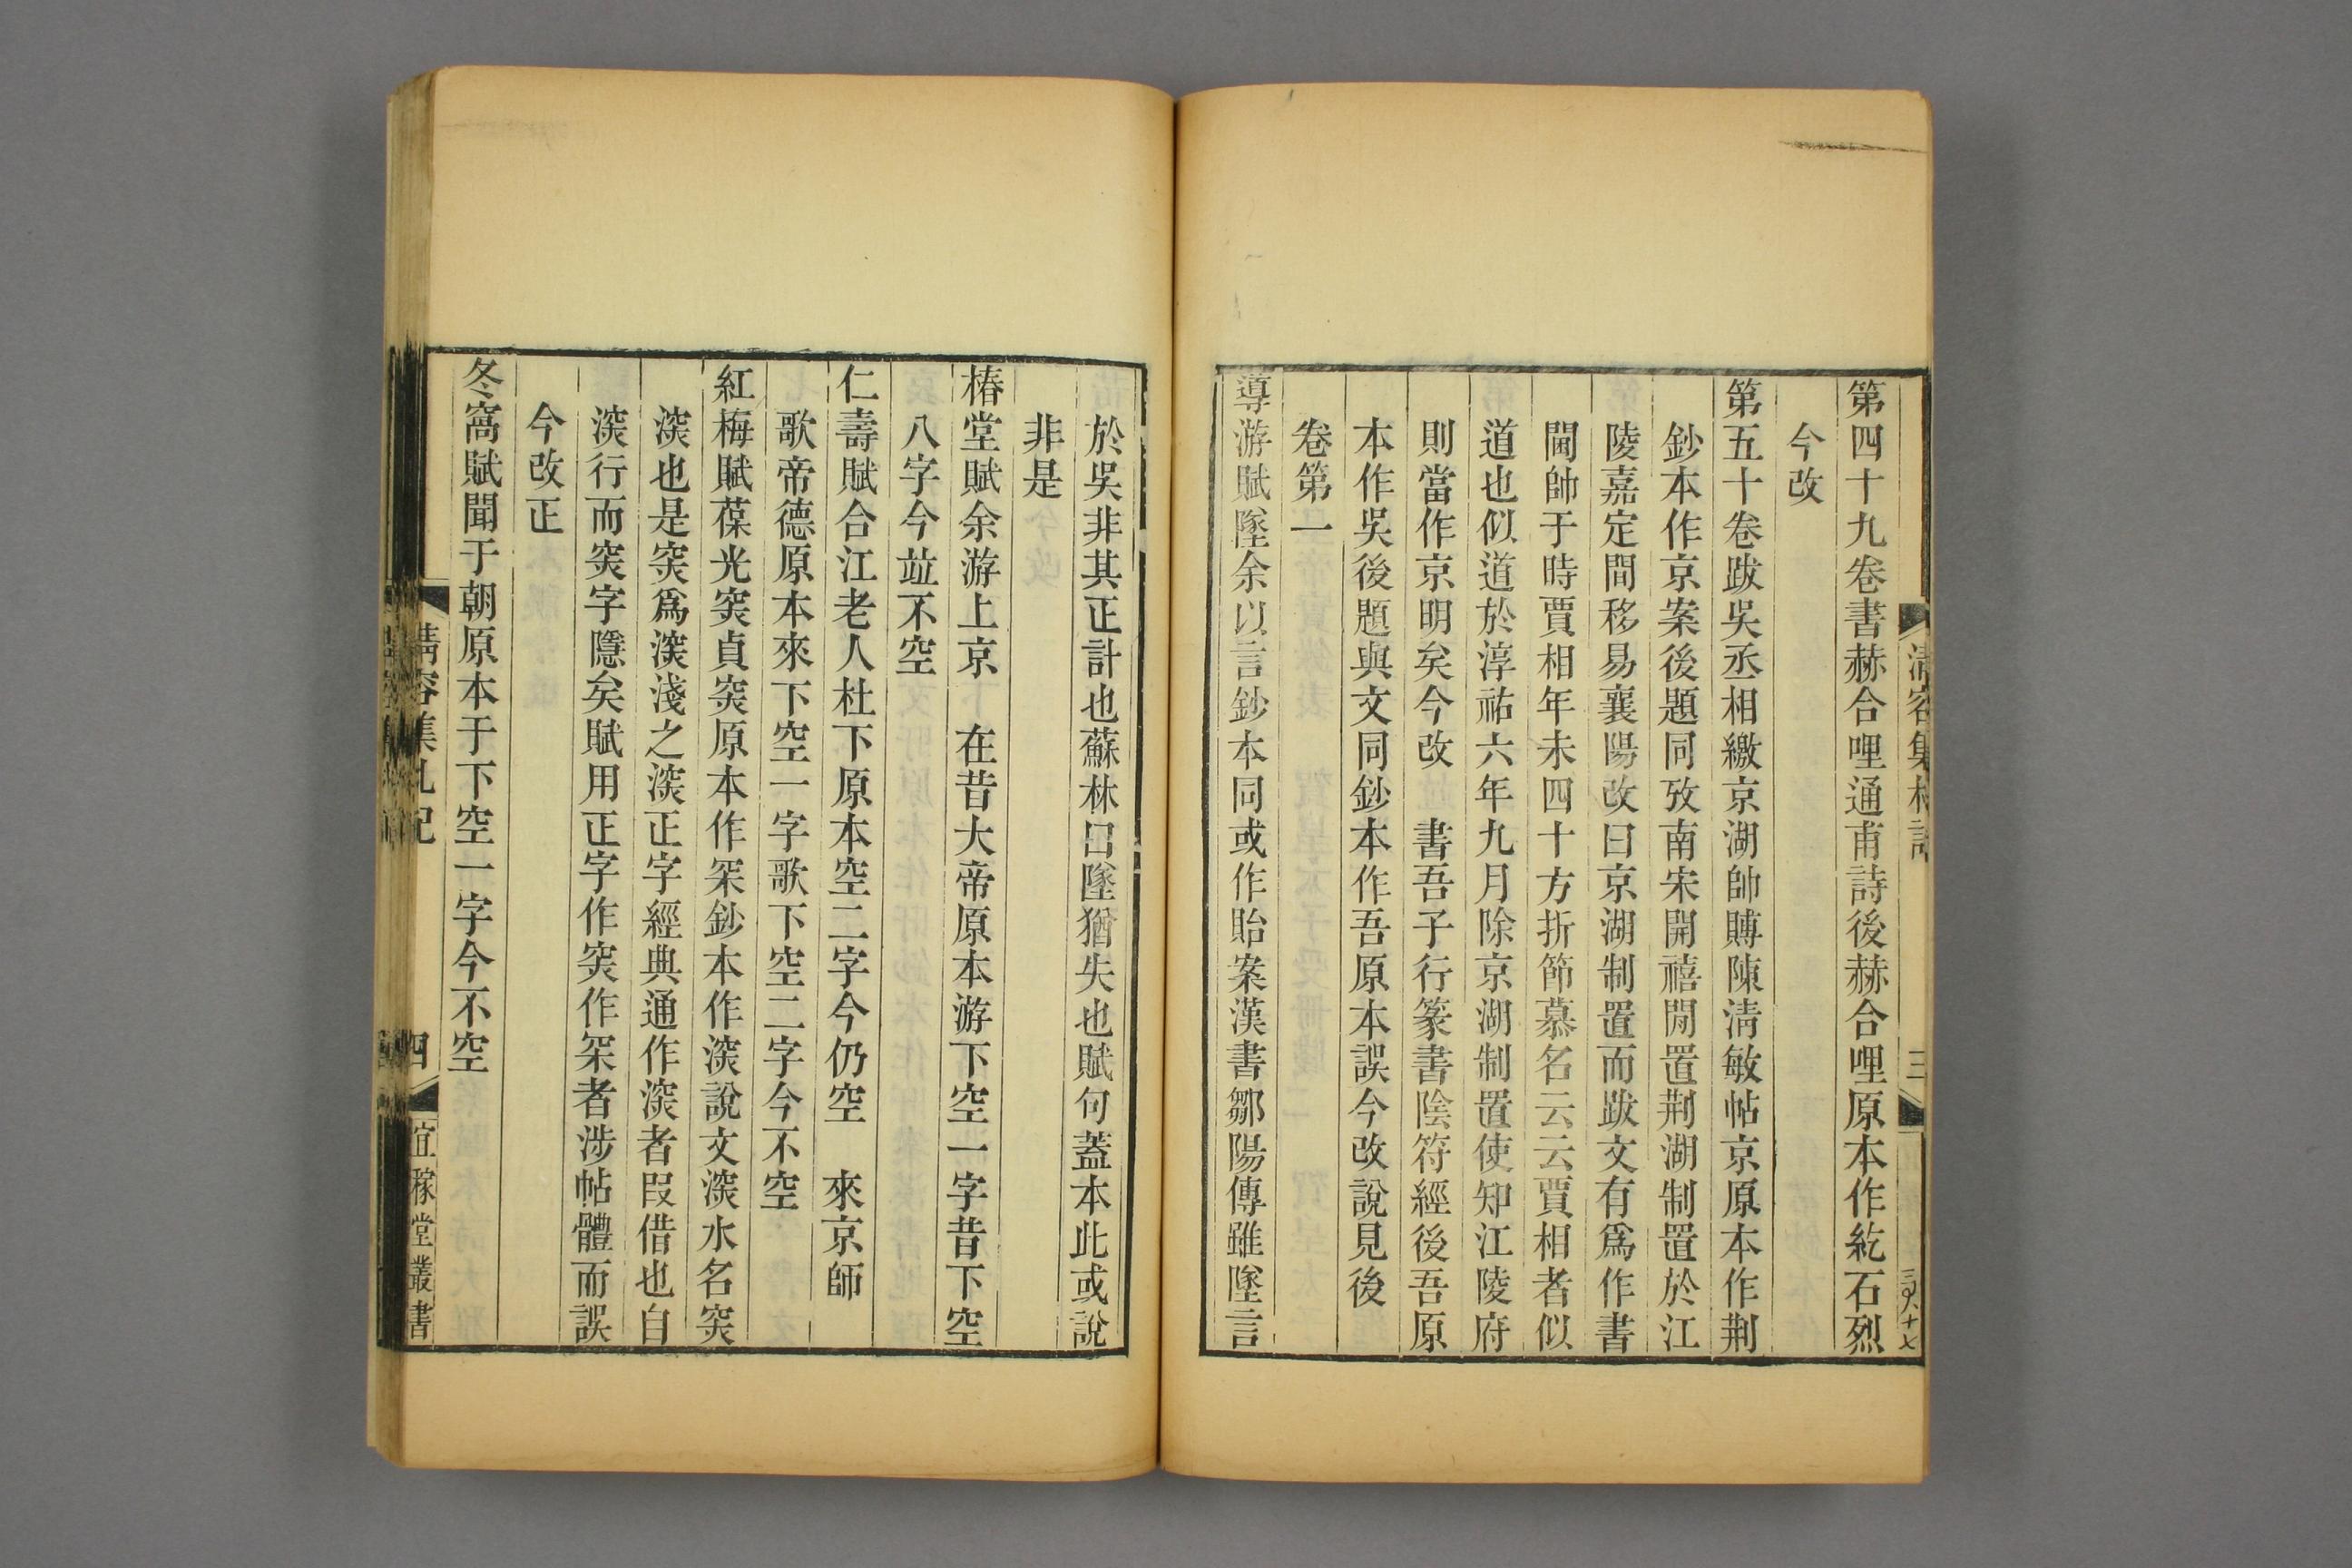 第四十九卷書赫合哩通甫詩後赫合哩原本作紇石烈
今改
第五十卷跋吳丞相繳京湖帥賻陳淸敏帖京原本作荆
鈔本作京案後題同攷南宋開禧閒置荆湖制置於江
陵嘉定間移易襄陽改曰京湖制置而跋文有爲作書
閫帥于時賈相年未四十方折節慕名云云賈相者似
道也似道於淳祐六年九月除京湖制置使知江陵府
則當作京明矣今改 書吾子行篆書陰符經後吾原
本作吳後題與文同鈔本作吾原本誤今改說見後
卷第一
導游賦墜余以言鈔本同或作貽案漢書鄒陽傳雖墜言
於吳非其正計也蘇林曰墜猶失也賦句蓋本此或說
非是
椿堂賦余游上京 在昔大帝原本游下空一字昔下空
八字今竝不空
仁壽賦合江老人杜下原本空二字今仍空 來京師
歌帝德原本來下空一字歌下空二字今不空
紅梅賦葆光突貞突原本作罙鈔本作湥說文湥水名突
湥也是突爲湥淺之湥正字經典通作湥者叚借也自
湥行而突字隱矣賦用正字作突作罙者涉帖體而誤
今改正
冬窩賦聞于朝原本于下空一字今不空
淸容集札記
四
宜稼堂叢書